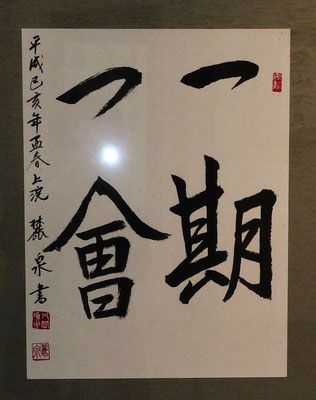 一期
一會
平成己亥年孟春上浣 麓泉書